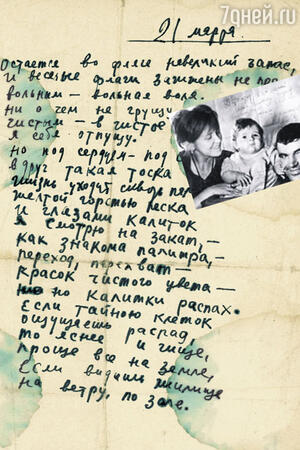 7дней.ru
21 марта.
Остается во фляге невеликий запас,
и веселые флаги зажжены не про
вольным – вольная воля.
ни о чем не грущу
чистым – в чистое
я себя отпущу.
Но под сердцем – под
вдруг такая тоска
жизнь уходит сквозь пал
желтой горстью песка
и глазами калиток
я смотрю на закат, –
как знакома палитра, –
переход, перехват –
красок чистого цвета –
но калитки распах.
Если тайною клеток
ощущаешь распад,
то яснее и чище,
проще все на земле,
если видишь жилище
на ветру, по золе.